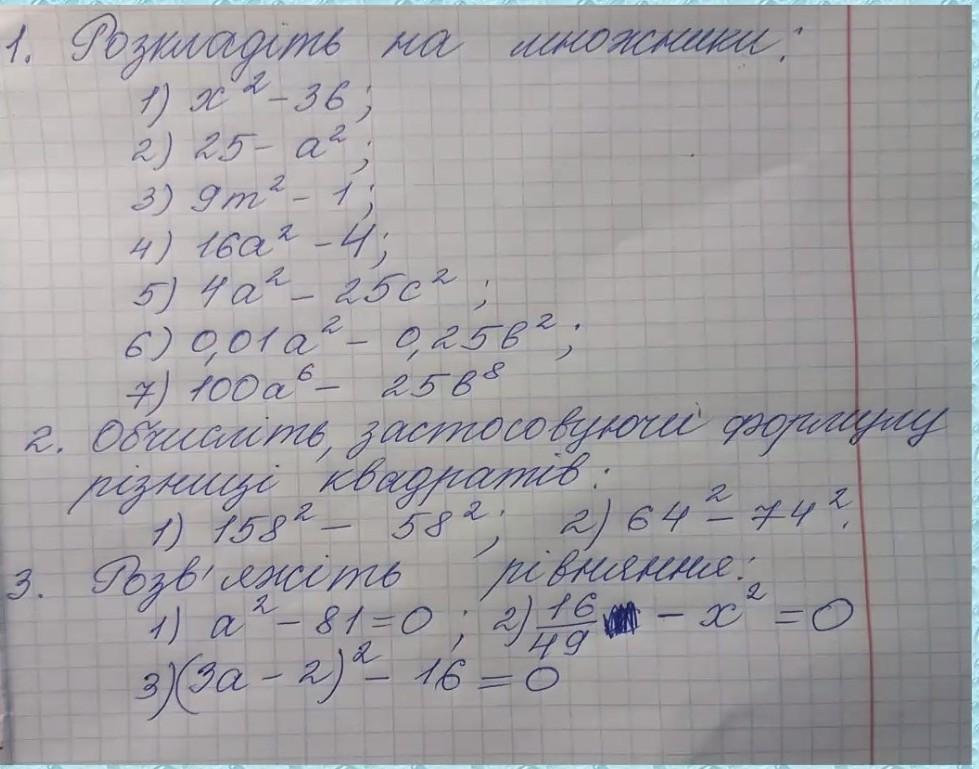 1. Розкладіть на множники:
1) x² - 36;
2) 25 - a²;
3) 9m² - 1;
4) 16a² - 4;
5) 4a² - 25c²;
6) 0,01a² - 0,25b²;
7) 100a⁶ - 25b⁸
2. Обчисліть, застосовуючи формулу
різниці квадратів:
1) 158² - 58²; 2) 64² - 74².
3. Розв'яжіть рівняння:
1) a² - 81 = 0; 2) 16/49 - x² = 0
3) (3a - 2)² - 16 = 0